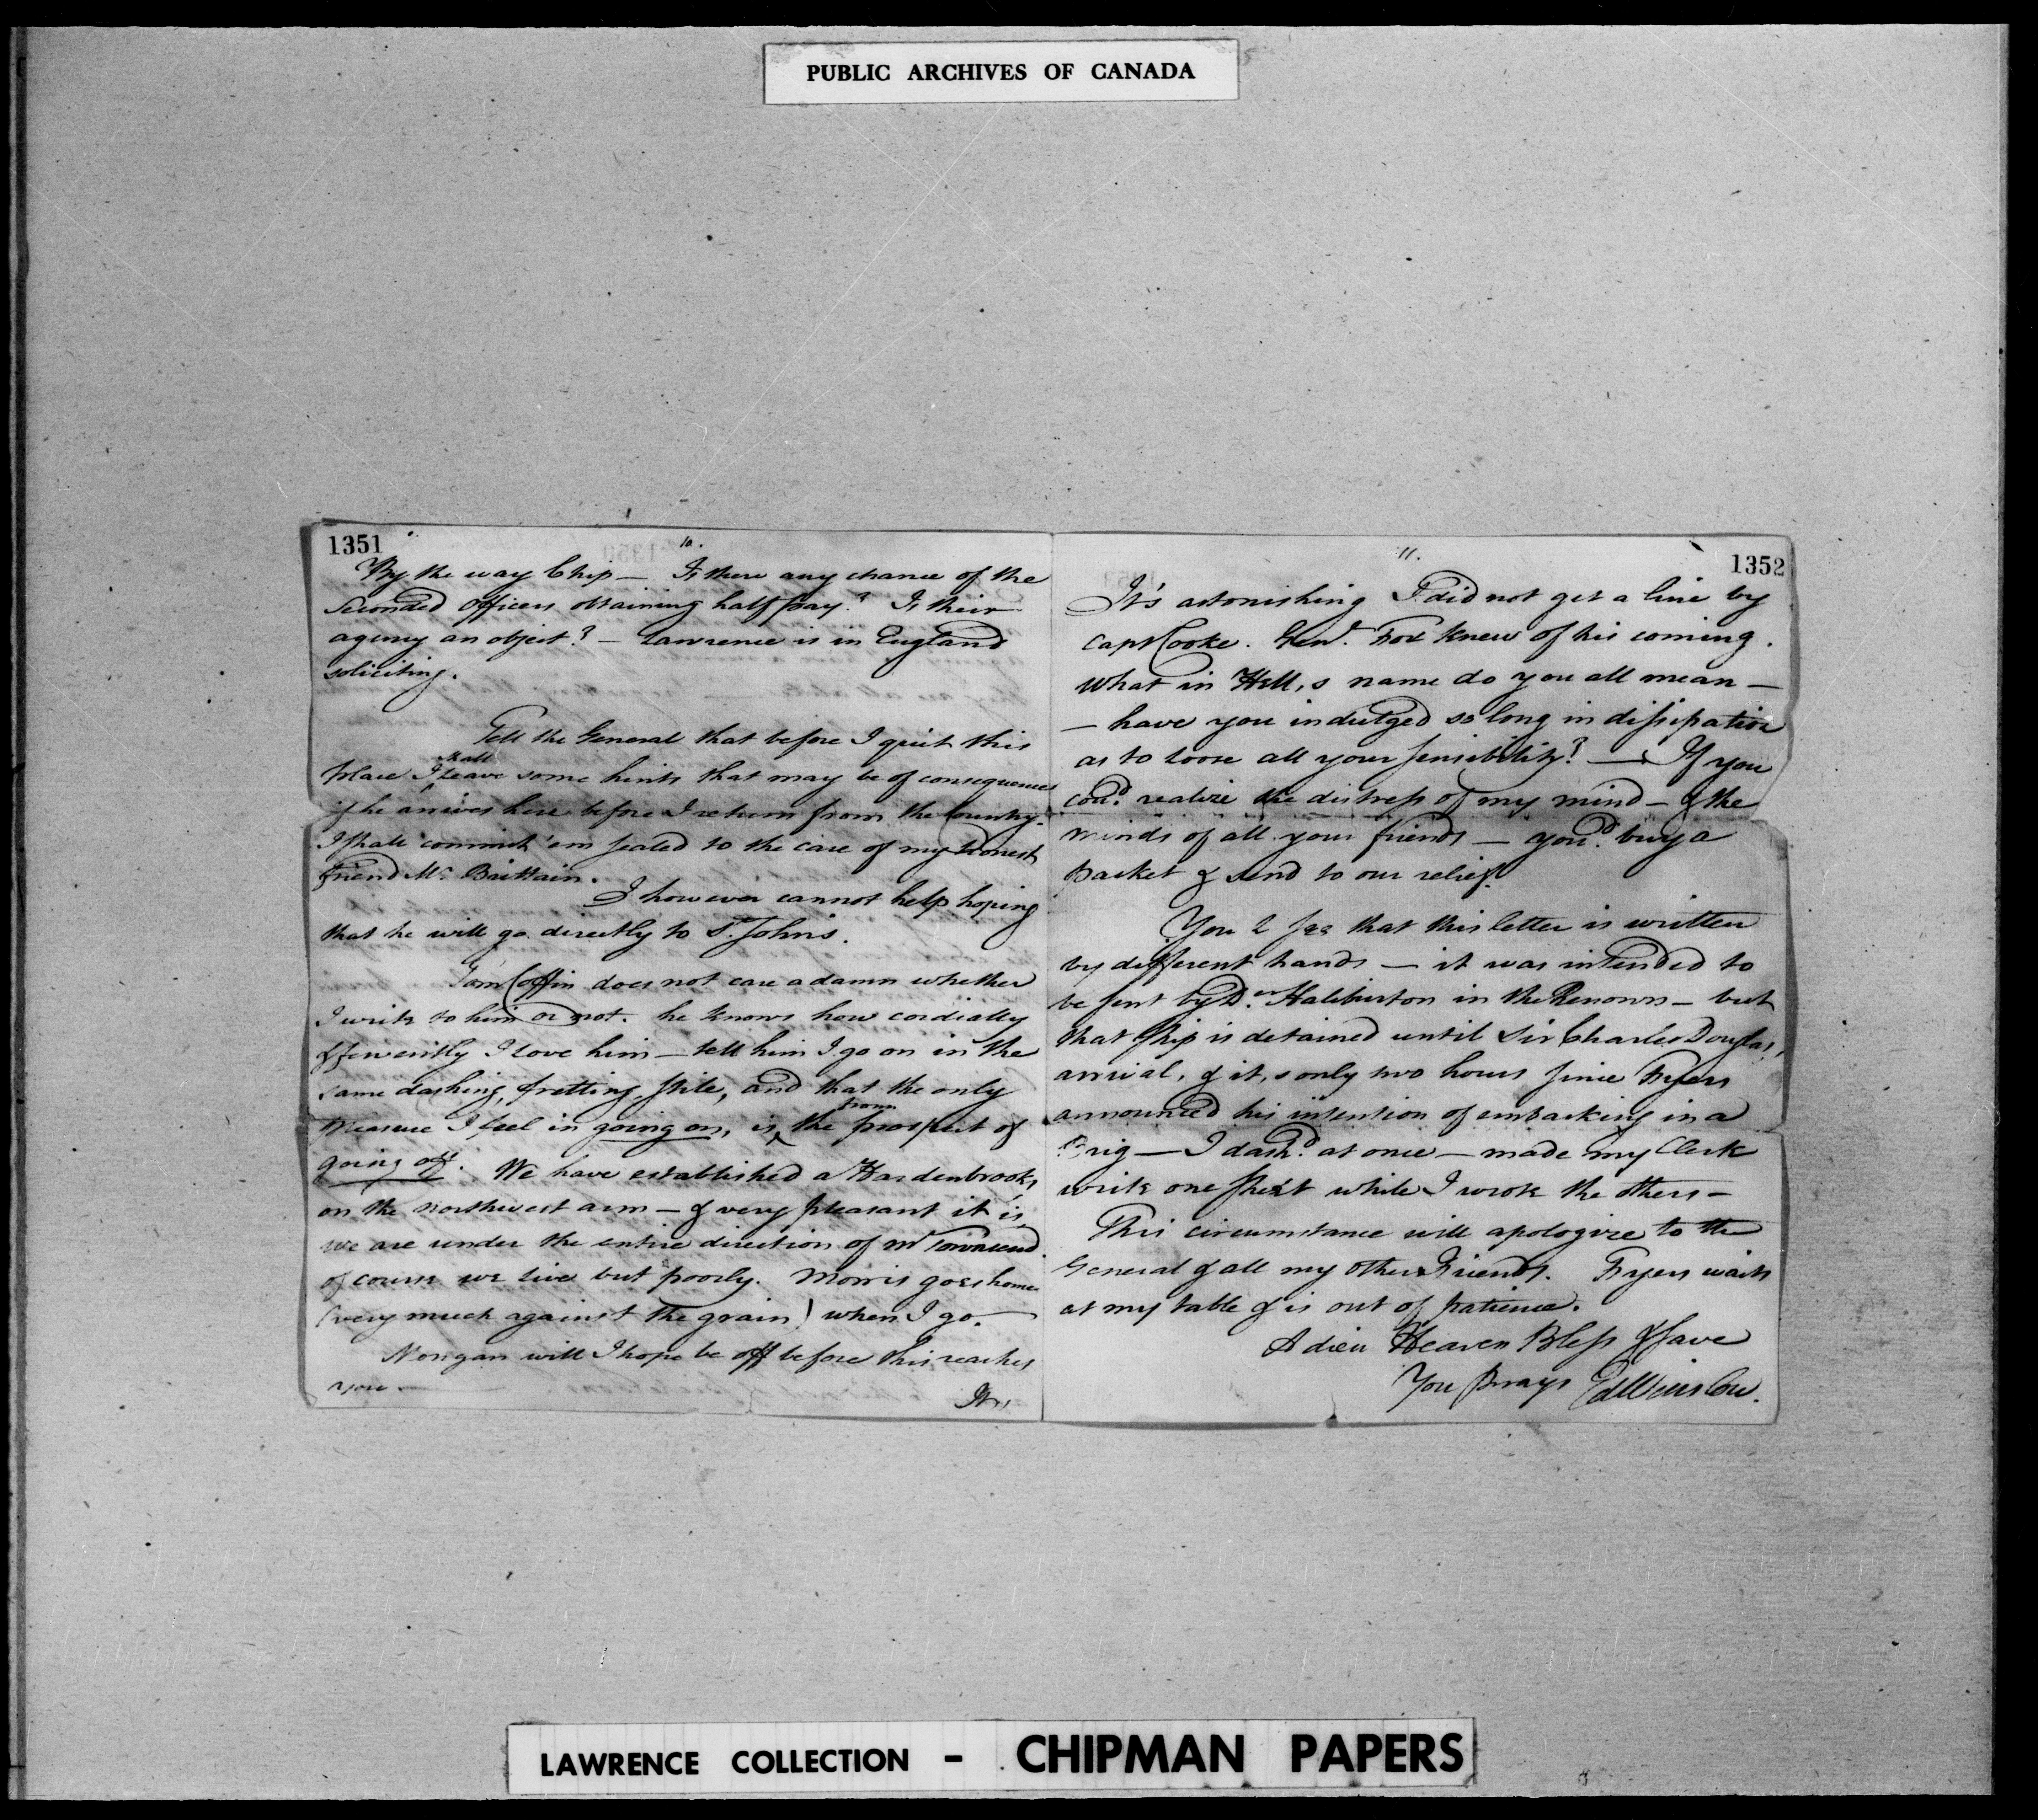 PUBLIC ARCHIVES OF CANADA
1351
10.
By the way Chip — Is there any chance of the
Seconded Officers obtaining half pay? Is their
agency an object? — Lawrence is in England
soliciting.
Tell the General that before I quit this
place I shall leave some hints that may be of consequence
if he arrives here before I return from the Country.
I shall commit 'em sealed to the care of my honest
friend Mr. Brittain.
I however cannot help hoping
that he will go directly to St. Johns.
Tom Coffin does not care a damn whether
I write to him or not. he knows how cordially
& fervently I love him — tell him I go on in the
same dashing, fretting stile, and that the only
pleasure I feel in going on, is from the prospect of
going off. We have established a Hardenbrook's
on the northwest arm — & very pleasant it is
we are under the entire direction of Mr Townsend
of course we live but poorly. Morris goes home
(very much against the grain) when I go.
Morgan will I hope be off before this reaches
you.
It's
11.
1352
It's astonishing I did not get a line by
Capt Cooke. Genl. Fox knew of his coming.
What in Hell,s name do you all mean —
— have you indulged so long in dissipation
as to loose all your sensibility? — If you
coud. realize the distress of my mind — & the
minds of all your friends — youd. buy a
packet & send to our relief.
You'l see that this letter is written
by different hands — it was intended to
be sent by Haliburton in the Renown — but
that ship is detained until Sir Charles Douglas,
arrival, & it,s only two hours since Fryers
announced his intention of embarking in a
Brig — I dashd. at once — made my Clerk
write one sheet while I wrote the others —
This circumstance will apologize to the
General & all my other Friends. Fryers waits
at my table & is out of patience.
Adieu Heaven Bless & save
You prays Ed Winslow.
LAWRENCE COLLECTION - CHIPMAN PAPERS